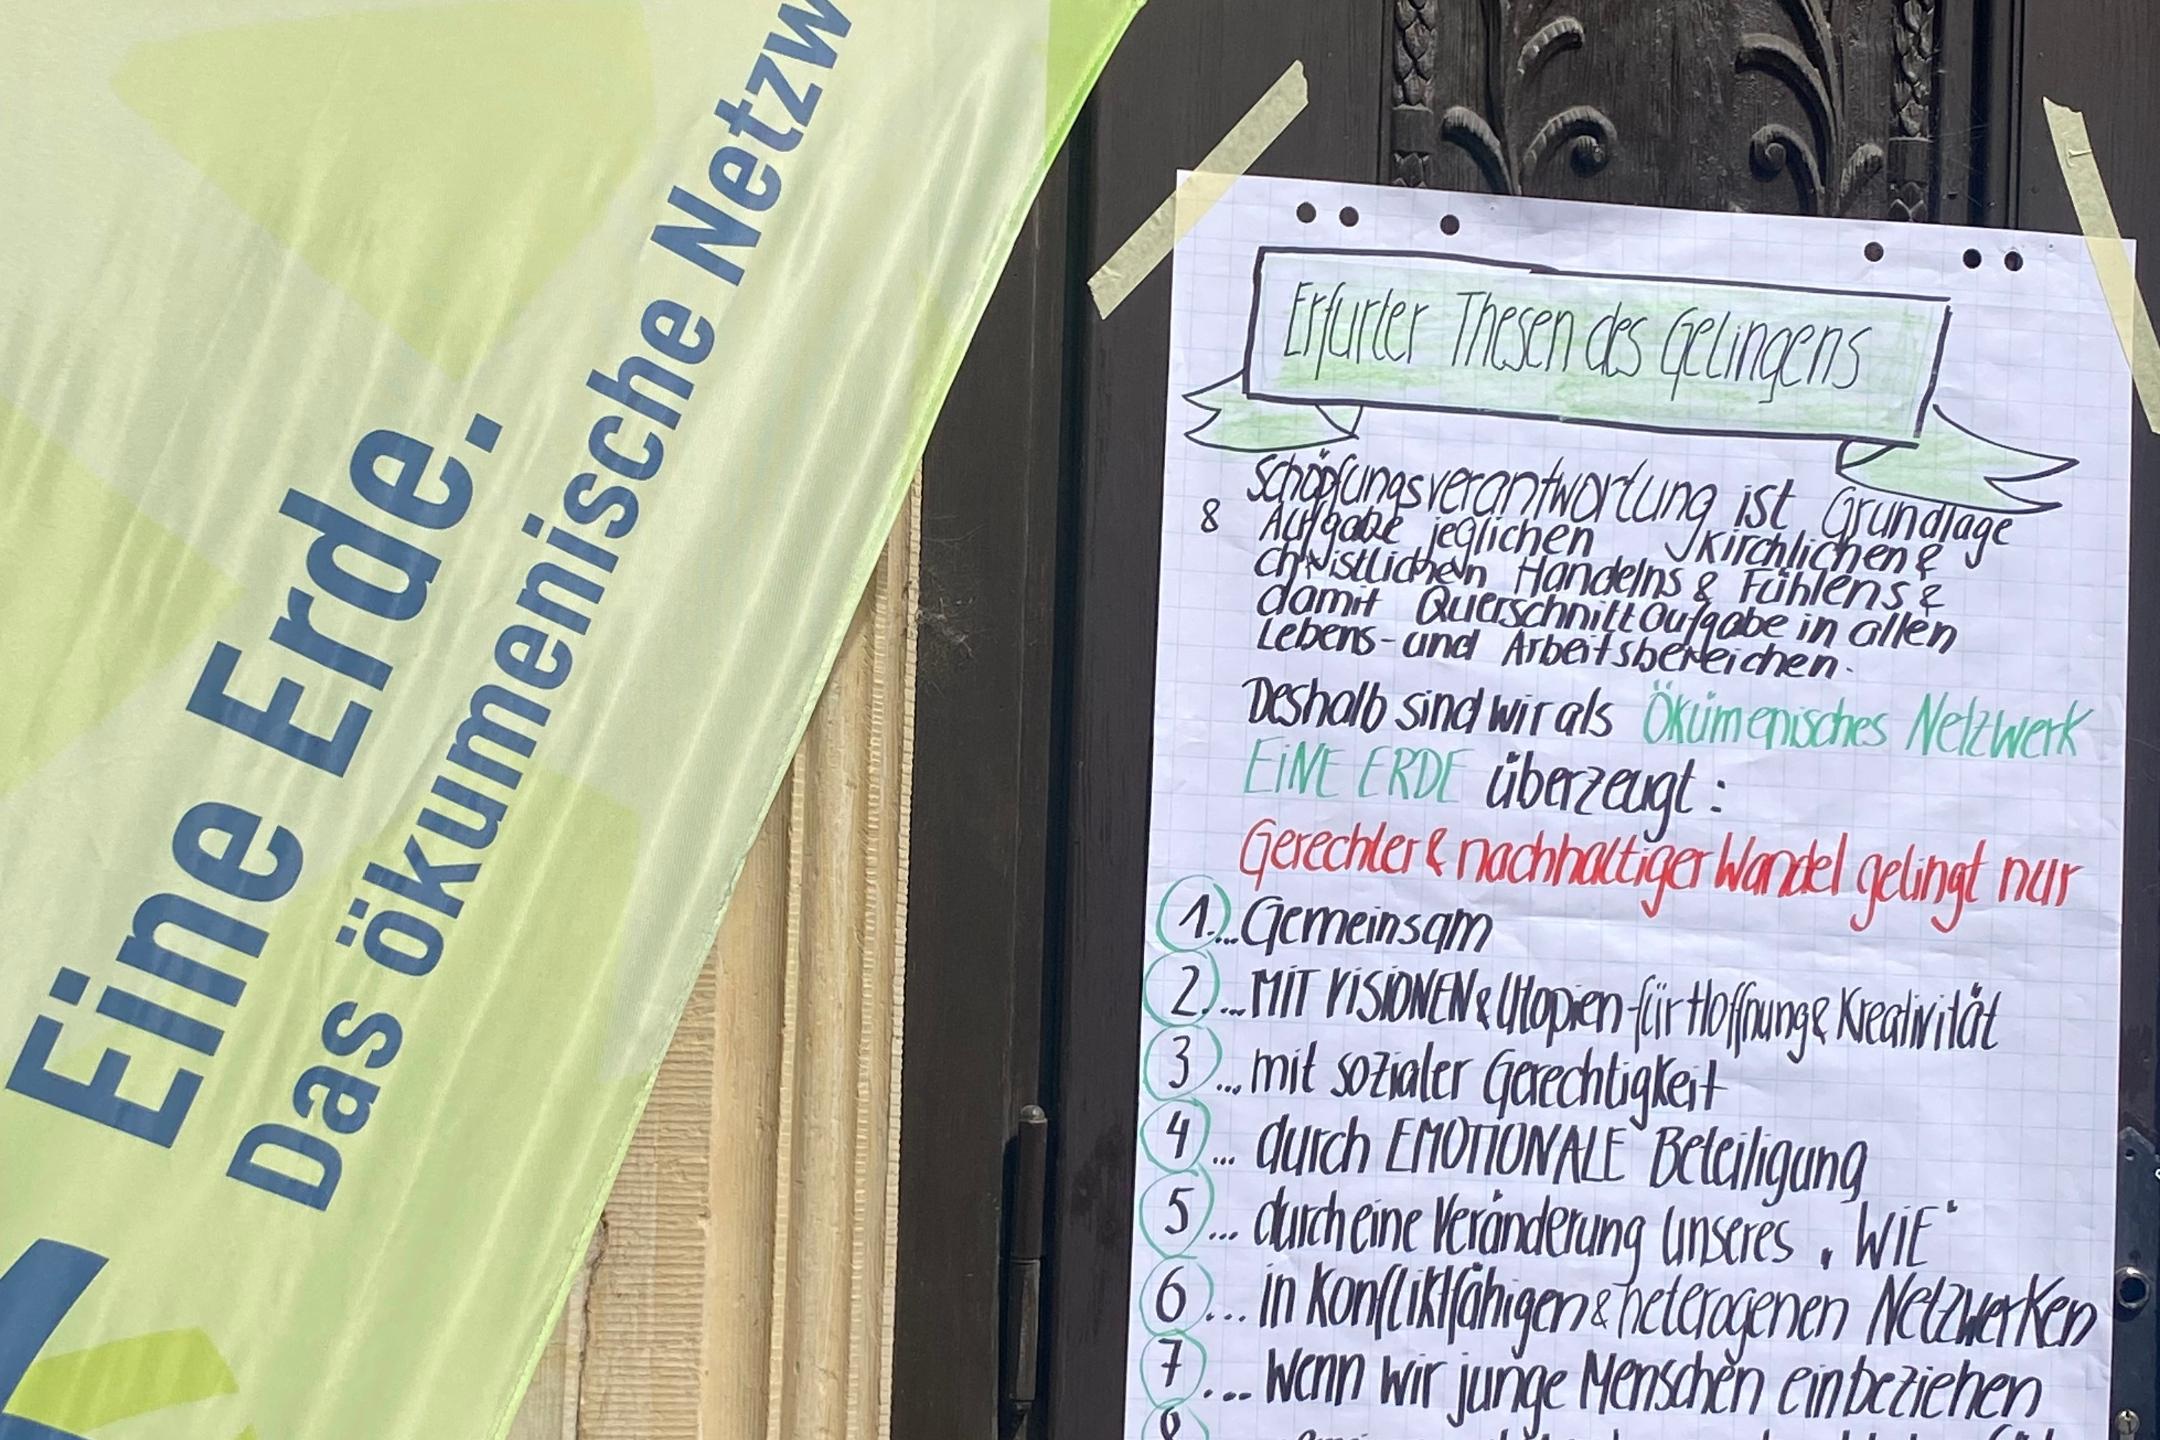 Eine Erde.
Das ökumenische Netzw
Erfurter Thesen des Gelingens
Schöpfungsverantwortung ist Grundlage
& Aufgabe jeglichen kirchlichen &
christlichen Handelns & Fühlens &
damit Querschnittaufgabe in allen
Lebens- und Arbeitsbereichen.
Deshalb sind wir als Ökumenisches Netzwerk
EINE ERDE überzeugt:
Gerechter & nachhaltiger Wandel gelingt nur
1. ...Gemeinsam
2. ...MIT VISIONEN & Utopien für Hoffnung & Kreativität
3 ...mit sozialer Gerechtigkeit
4 ... durch EMOTIONALE Beteiligung
5 ... durch eine Veränderung unseres "WIE"
6 ... in Konfliktfähigen & heterogenen Netzwerken
7 ... wenn wir junge Menschen einbeziehen
8